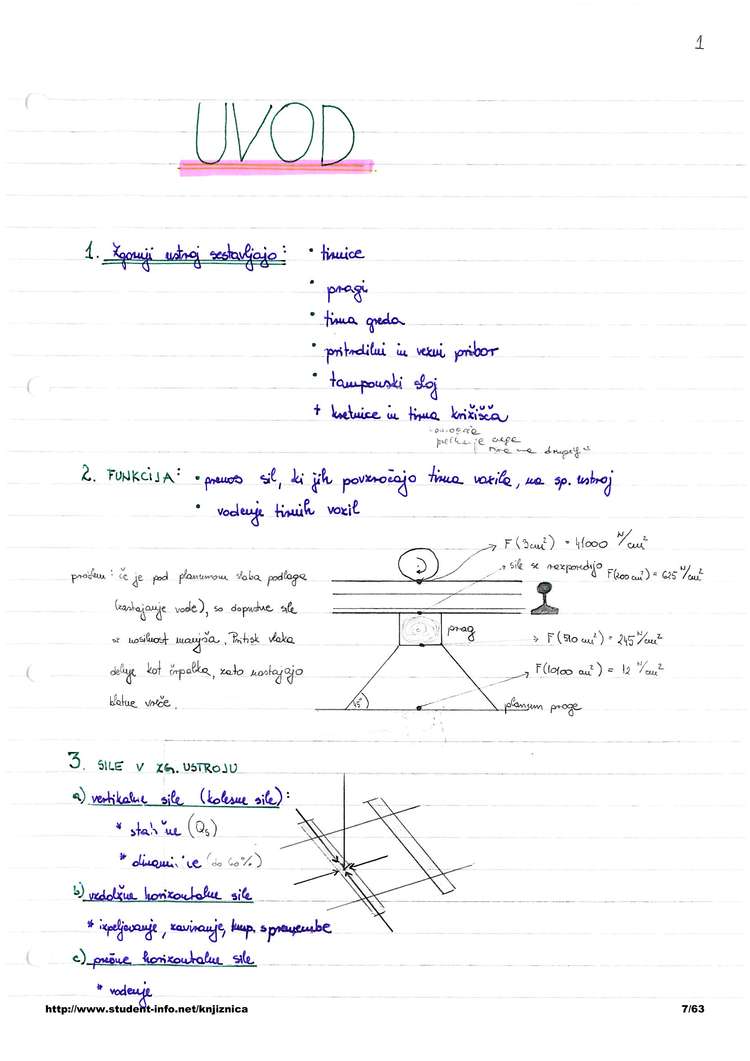 1
UVOD
1. Zgornji ustroj sestavljajo: • tirnice
• pragi
• tirna greda
• pritrdilni in vezni pribor
• tamponski sloj
+ kretnice in tirna križišča
2. FUNKCIJA: • prenos sil, ki jih povzročajo tirna vozila, na sp. ustroj
• vodenje tirnih vozil
F(3cm²) = 41000 N/cm²
sile se razporedijo F(200 cm²) = 625 N/cm²
prag
F(510 cm²) = 245 N/cm²
F(10100 cm²) = 12 N/cm²
45°
planum proge
problem: če je pod planumom slaba podlaga
(zastajanje vode), so dopustne sile
se nosilnost manjša. Pritisk vlaka
deluje kot črpalka, zato nastajajo
blatne vreče.
3. SILE V ZG. USTROJU
a) vertikalne sile (kolesne sile):
* statične (Qs)
* dinamične (do 60%)
b) vzdolžne horizontalne sile
* izpeljevanje, zaviranje, temp. spremembe
c) prečne horizontalne sile
* vodenje
http://www.student-info.net/knjiznica
7/63